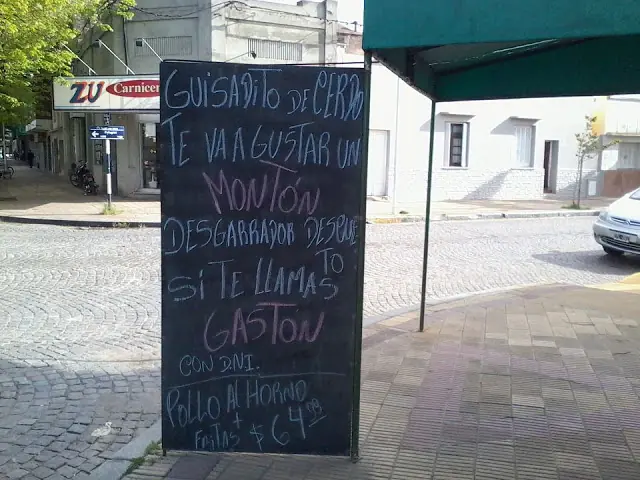 GUISADITO DE CERDO
TE VA A GUSTAR UN
MONTÓN
DESGARRADOR DESCUE
TO
SI TE LLAMAS
GASTON
CON D.N.I.
POLLO AL HORNO
+
FRITAS $64
ZU Carnicer